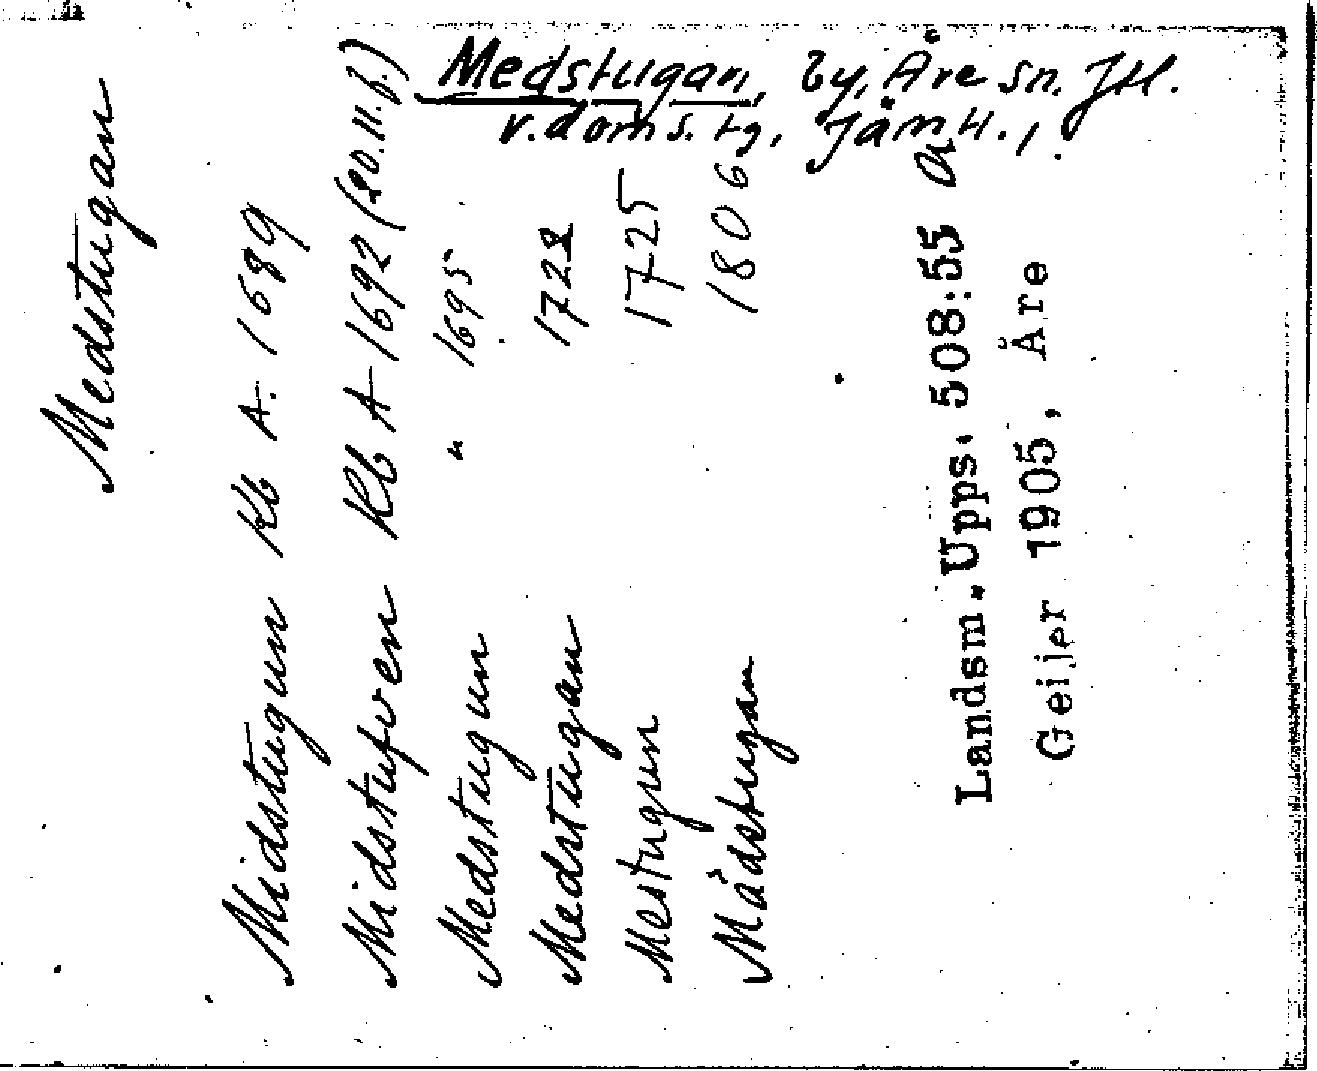 Medstugan, by, Åre sn. Jtl.
v. doms. tg, Jämtl.,
Medstugan
Midstugun Kb A. 1689
Midstufven Kb A 1692 (20.11.f.)
Medstugun " 1695
Medstugan 1722
Mestugun 1725
Mädstugan 1806
Landsm. Upps. 508:55 a
Geijer 1905, Åre